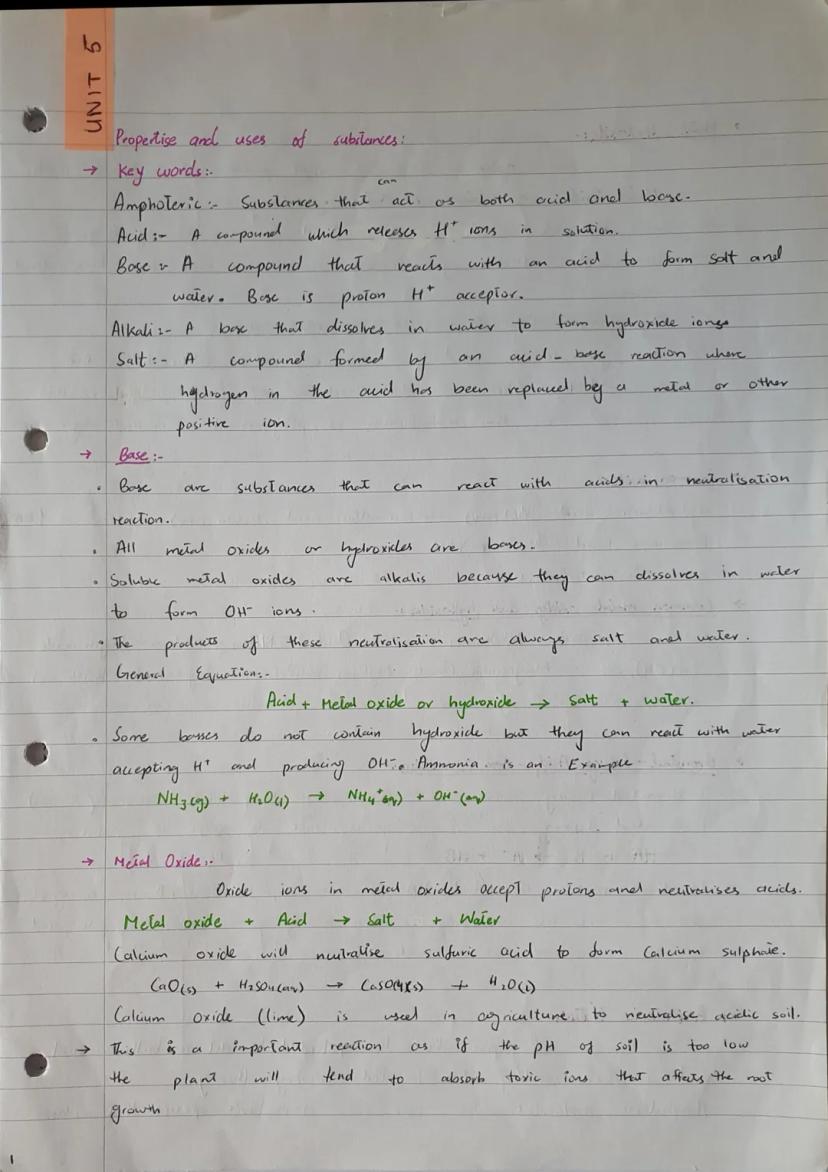 UNIT 5
Propertise and uses of substances:
→ Key words:-
can
Amphoteric :- Substances that act as both acid and base.
Acid :- A compound which releases H⁺ ions in solution.
Base :- A compound that reacts with an acid to form salt and
water. Base is proton H⁺ acceptor.
Alkali :- A base that dissolves in water to form hydroxide ions
Salt :- A compound formed by an acid - base reaction where
hydrogen in the acid has been replaced by a metal or other
positive ion.
→ Base :-
• Base are substances that can react with acids in neutralisation
reaction.
• All metal oxides or hydroxides are bases.
• Soluble metal oxides are alkalis because they can dissolves in water
to form OH⁻ ions.
• The products of these neutralisation are always salt and water.
General Equation:-
Acid + Metal oxide or hydroxide → Salt + water.
• Some basses do not contain hydroxide but they can react with water
accepting H⁺ and producing OH⁻. Ammonia is an Example
NH₃(g) + H₂O(l) → NH₄⁺(aq) + OH⁻(aq)
→ Metal Oxide:-
Oxide ions in metal oxides accept protons and neutralises acids.
Metal oxide + Acid → Salt + Water
Calcium oxide will neutralise sulfuric acid to form Calcium sulphate.
CaO(s) + H₂SO₄(aq) → CaSO₄(s) + H₂O(l)
Calcium oxide (lime) is used in agriculture to neutralise acidic soil.
→ This is a important reaction as if the pH of soil is too low
the plant will tend to absorb toxic ions that affects the root
growth
1